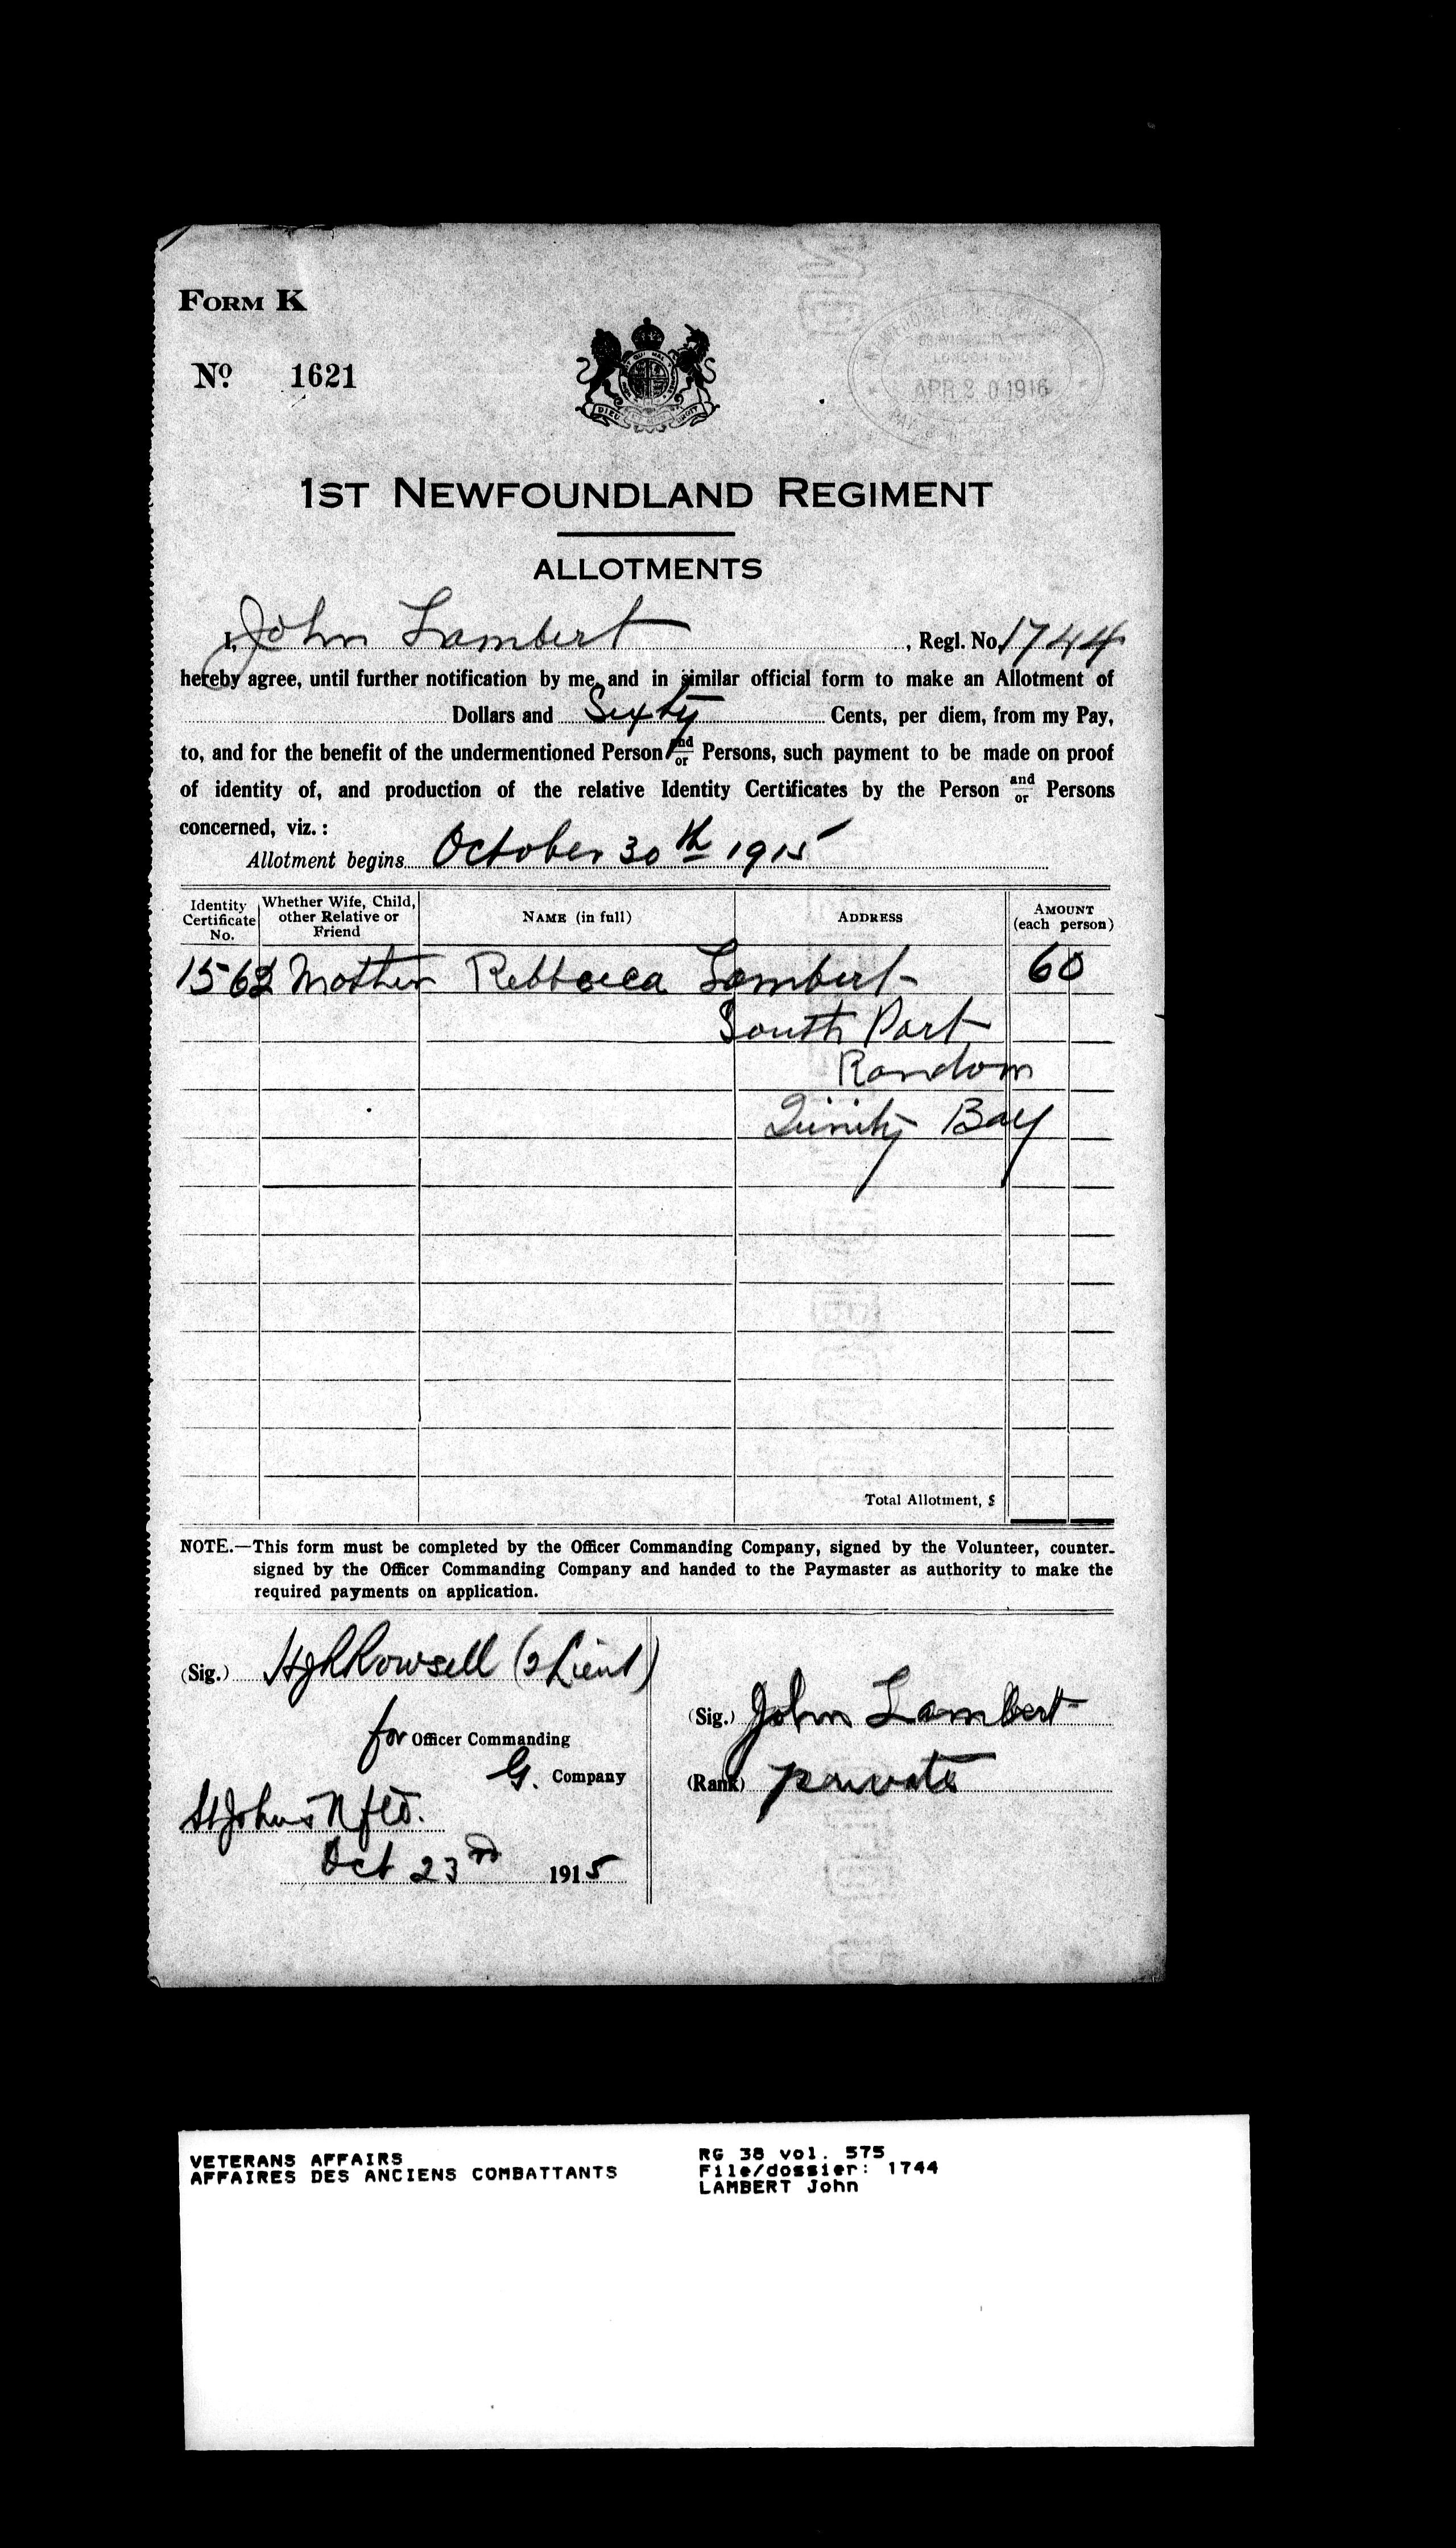 FORM K
No. 1621
APR 20 1916
1ST NEWFOUNDLAND REGIMENT
ALLOTMENTS
I, John Lambert, Regl. No. 1744
hereby agree, until further notification by me, and in similar official form to make an Allotment of
Dollars and Sixty Cents, per diem, from my Pay,
to, and for the benefit of the undermentioned Person and/or Persons, such payment to be made on proof
of identity of, and production of the relative Identity Certificates by the Person and/or Persons
concerned, viz.:
Allotment begins October 30th 1915
Identity Certificate No. Whether Wife, Child, other Relative or Friend NAME (in full) ADDRESS AMOUNT (each person)
1562 Mother Rebbecca Lambert 60
South Port
Random
Trinity Bay
Total Allotment, $
NOTE.—This form must be completed by the Officer Commanding Company, signed by the Volunteer, counter-
signed by the Officer Commanding Company and handed to the Paymaster as authority to make the
required payments on application.
(Sig.) H J R Rowsell (2 Lieut)
for Officer Commanding
G. Company
St Johns Nfld.
Oct 23rd 1915
(Sig.) John Lambert
(Rank) private
VETERANS AFFAIRS
AFFAIRES DES ANCIENS COMBATTANTS
RG 38 vol. 575
File/dossier: 1744
LAMBERT John